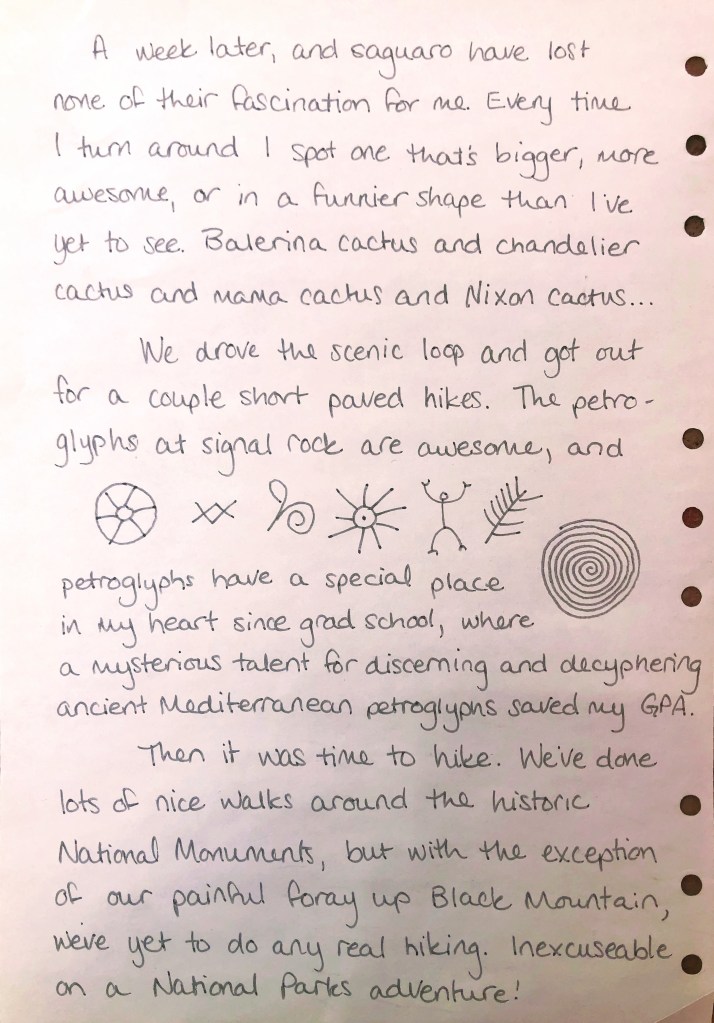 A week later, and saguaro have lost
none of their fascination for me. Every time
I turn around I spot one that's bigger, more
awesome, or in a funnier shape than I've
yet to see. Balerina cactus and chandelier
cactus and mama cactus and Nixon cactus...
We drove the scenic loop and got out
for a couple short paved hikes. The petro-
glyphs at signal rock are awesome, and
petroglyphs have a special place
in my heart since grad school, where
a mysterious talent for discerning and decyphering
ancient Mediterranean petroglyphs saved my GPA.
Then it was time to hike. We've done
lots of nice walks around the historic
National Monuments, but with the exception
of our painful foray up Black Mountain,
we've yet to do any real hiking. Inexcuseable
on a National Parks adventure!